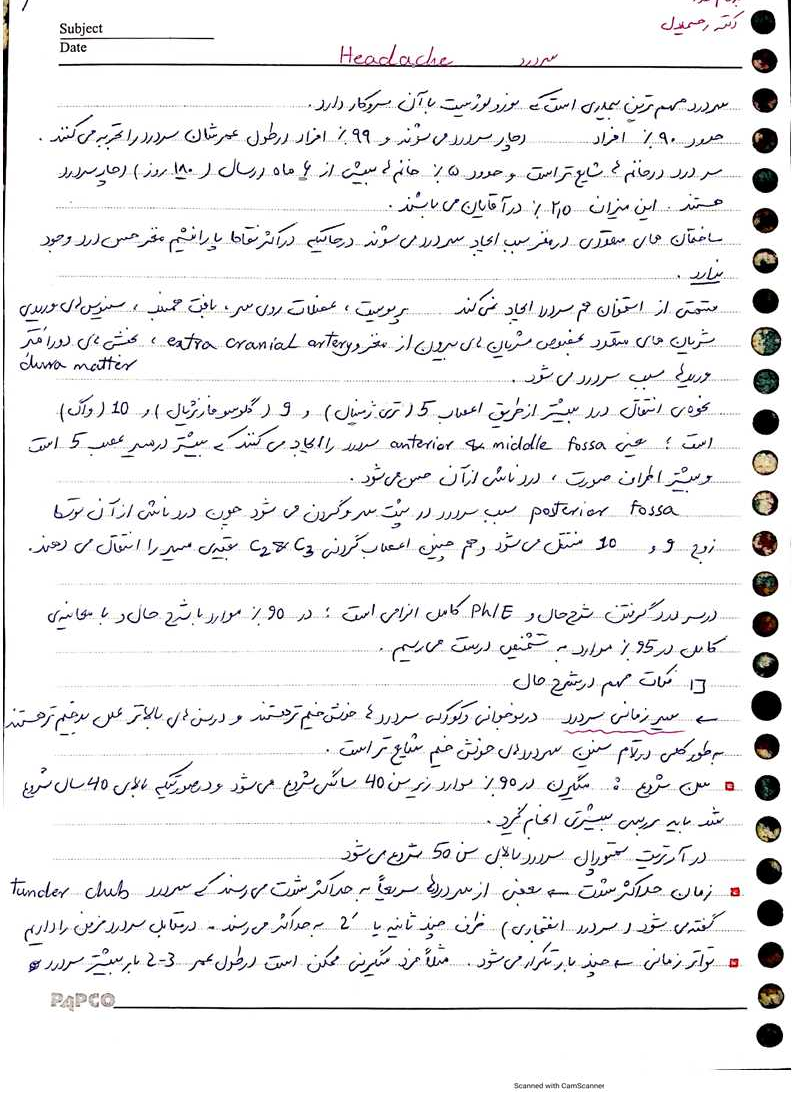 دکتر رحمدل
Subject
Date
Headache سردرد
سردرد مهم ترین بیماری است که نورولوژیست با آن سروکار دارد.
حدود ۹۰٪ افراد دچار سردرد می شوند و ۹۹٪ افراد در طول عمرشان سردرد را تجربه می کنند.
سردرد در خانم ها شایع تر است و حدود ۵٪ خانم ها بیش از ۶ ماه در سال (۱۸۰ روز) دچار سردرد
هستند. این میزان ۲٫۵٪ در آقایان می باشد.
ساختمان های متعددی در مغز سبب ایجاد سردرد می شوند درحالیکه در اکثر نقاط پارانشیم مغز حس درد وجود
ندارد.
قسمتی از استخوان هم سردرد ایجاد نمی کند پوست، عضلات روی سر، بافت ملتحمه، سینوس های وریدی
شریان های متعدد بخصوص شریان های بیرون از مغز و extra cranial artery، بخش های دورا مَتِر
dura matter
وریدها سبب سردرد می شود.
نحوه ی انتقال درد بیشتر از طریق اعصاب 5 (تری ژمینال) و 9 (گلوسوفارنژیال) و 10 (واگ)
است؛ یعنی anterior & middle fossa سردرد را ایجاد می کنند که بیشتر در مسیر عصب 5 است
و بیشتر اطراف صورت، درد ناشی از آن حس می شود.
posterior fossa سبب سردرد در پشت سر و گردن می شود چون درد ناشی از آن توسط
زوج 9 و 10 منتقل می شود و هم چنین اعصاب گردنی C2 & C3 بقیه ی مسیر را انتقال می دهند.
در سردرد گرفتن شرح حال و Ph/E کامل الزامی است؛ در 90٪ موارد با شرح حال و با معاینه ی
کامل در 95٪ موارد به تشخیص درست می رسیم.
نکات مهم در شرح حال
← سیر زمانی سردرد در نوجوانی و کودکی سردردها خوش خیم ترهستند و در سن های بالاتر علل بدخیم ترهستند
به طور کلی در تمام سنین سردردهای خوش خیم شایع تر است.
سن شروع : میگرن در 90٪ موارد زیر سن 40 سالگی شروع می شود و درصورتیکه بالای 40 سال شروع
شد باید بررسی بیشتری انجام گیرد.
در آرتریت تمپورال سردرد بالای سن 50 شروع می شود
زمان حداکثر شدت ← بعضی از سردردها سریعاً به حداکثر شدت می رسند که سردرد Tunder club
گفته می شود (سردرد انفجاری) ظرف چند ثانیه یا 2' به حداکثر می رسند. در مقابل سردرد مزمن را داریم
تواتر زمانی ← چند بار تکرار می شود. مثلاً فرد میگرنی ممکن است در طول عمر 2-3 بار بیشتر سردرد
PAPCO
Scanned with CamScanner